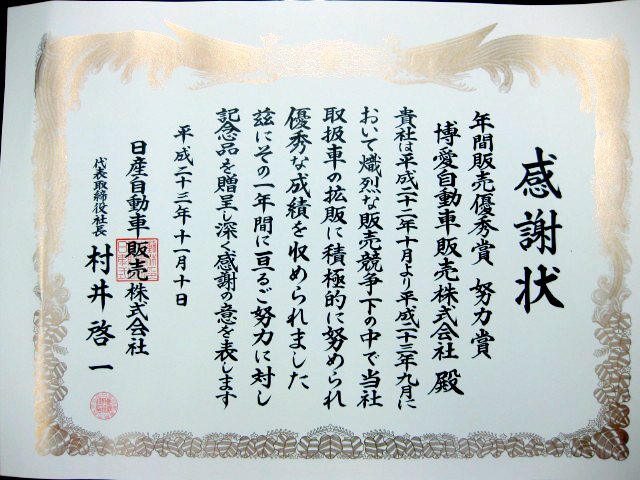 感謝状
年間販売優秀賞 努力賞
博愛自動車販売株式会社 殿
貴社は平成二十二年十月より平成二十三年九月に
おいて熾烈な販売競争下の中で当社
取扱車の拡販に積極的に努められ
優秀な成績を収められました
玆にその一年間に亘るご努力に対し
記念品を贈呈し深く感謝の意を表します
平成二十三年十一月十日
日産自動車販売株式会社
代表取締役社長 村井啓一